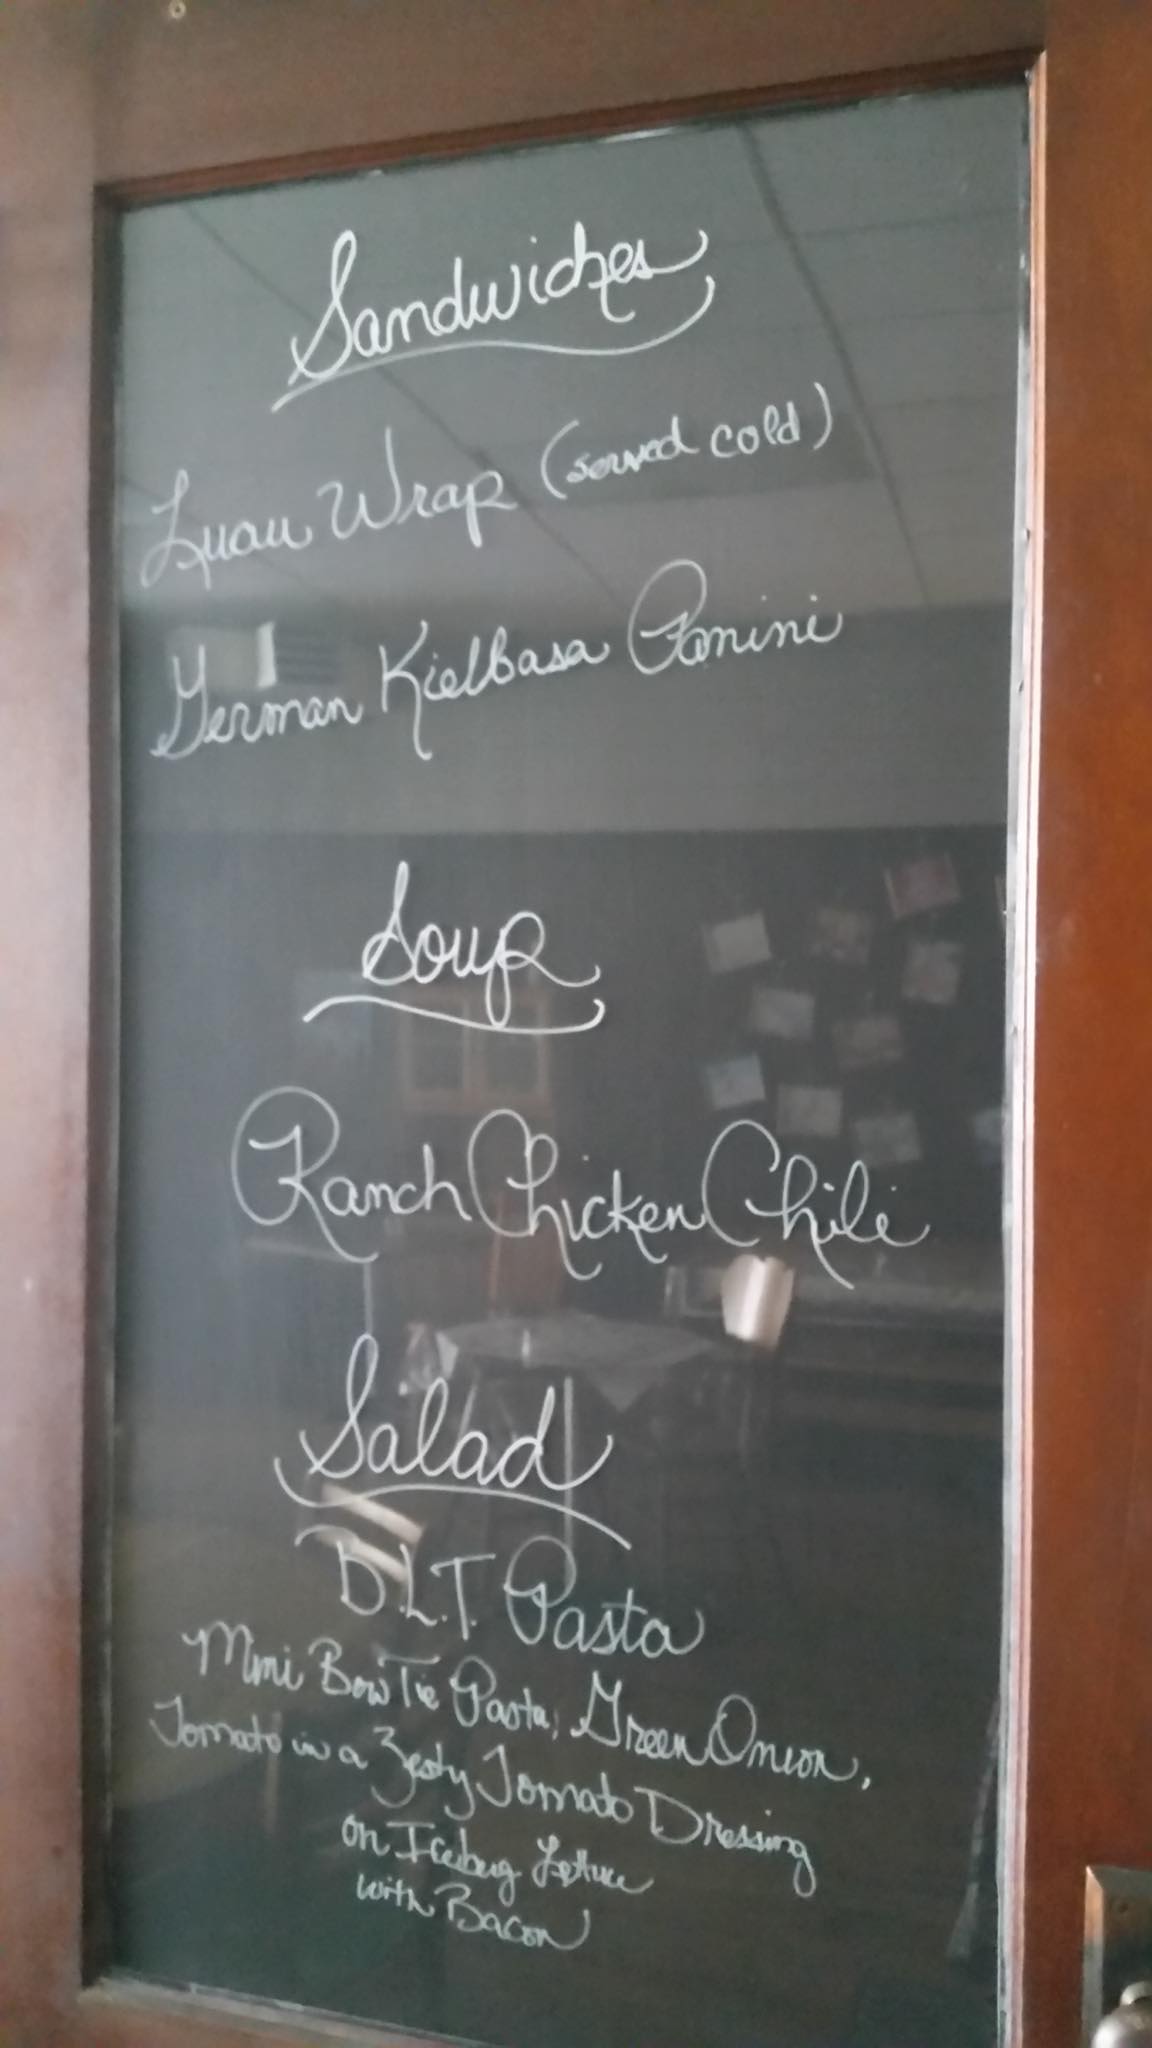 Sandwiches
Luau Wrap (served cold)
German Kielbasa Panini
Soup
Ranch Chicken Chili
Salad
B.L.T. Pasta
Mini Bow Tie Pasta, Green Onion,
Tomato in a Zesty Tomato Dressing
on Iceberg Lettuce
with Bacon